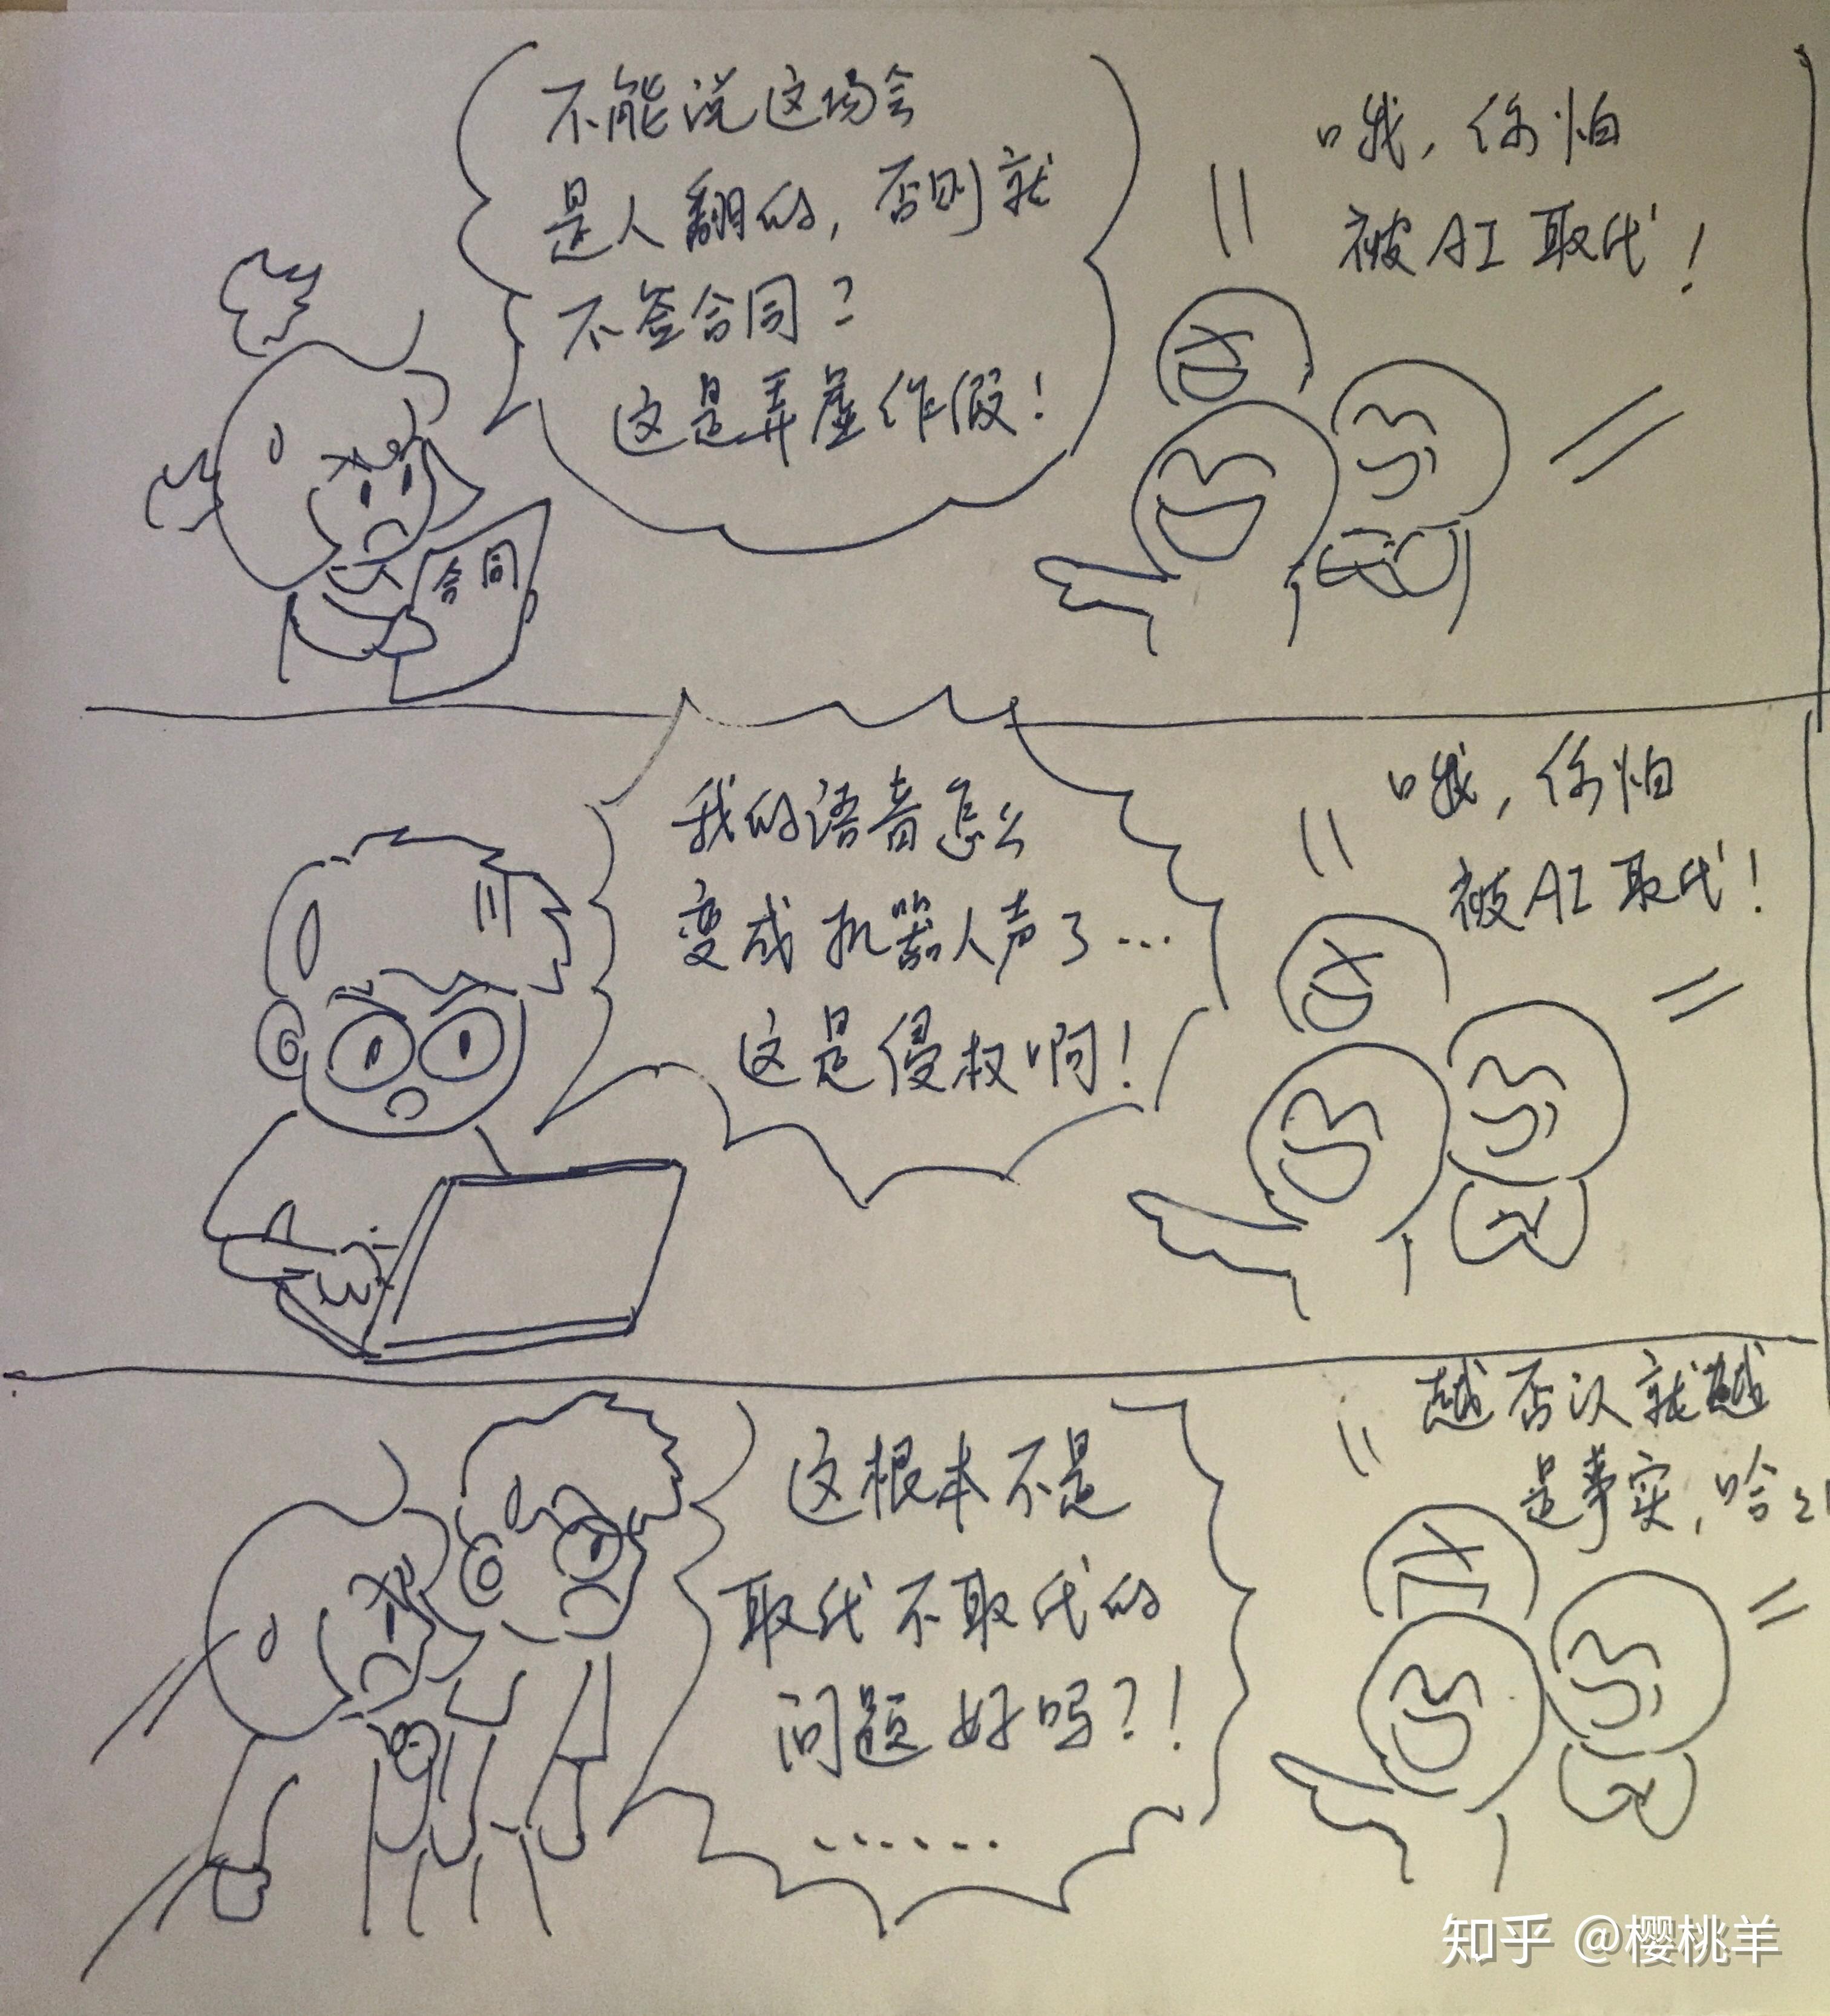 不能说这场会
是人翻的，否则就
不签合同？
这是弄虚作假！
合同
哦，你怕
被AI取代！
我的语音怎么
变成机器人声了…
这是侵权啊！
哦，你怕
被AI取代！
这根本不是
取代不取代的
问题好吗？！
……
越否认就越
是事实，哈
知乎 @樱桃羊